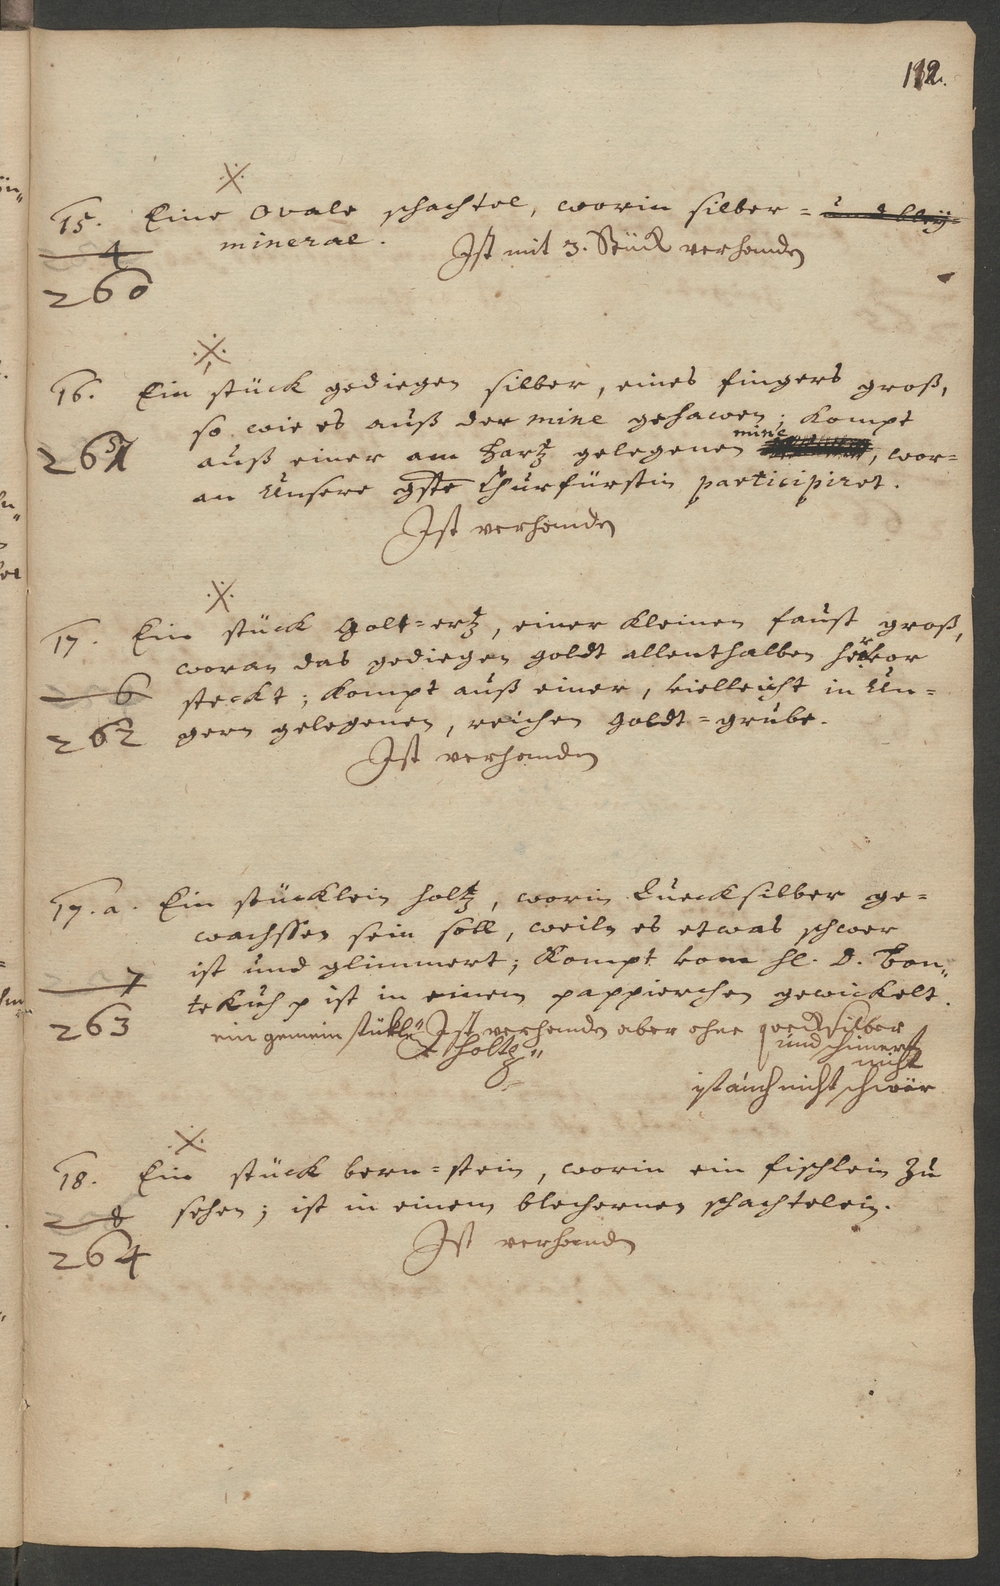 112.
15. Eine Ovale schachtel, worin silber= und bleÿ=
4 minerae. Ist mit 3. Stück verhanden
260
16. Ein stück gediegen silber, eines fingers groß,
so wie es auß der mine gehawen; Kompt
261 auß einer am Hartz gelegenen mine, wor=
an Unsere gste Churfürstin participiret.
Ist verhanden
17. Ein stück Golt=ertz, einer kleinen faust groß,
woran das gediegen goldt allenthalben hervor
6 steckt; Kompt auß einer, vielleicht in Un=
262 gern gelegenen, reichen goldt=grube.
Ist verhanden
17.a. Ein stücklein holtz, worin Quecksilber ge=
wachssen sein soll, weiln es etwas schwer
7 ist und glimmert; Kompt vom Hl. D. Bon=
tekuh p ist in einem pappierchen gewickelt.
263 ein gemein stükle Ist verhanden aber ohne quecksilber
holtz und schimert
nicht
ist auch nicht schwär
18. Ein stück bern=stein, worin ein fischlein zu
8 sehen; ist in einem blechernen schachtelein.
264 Ist verhanden